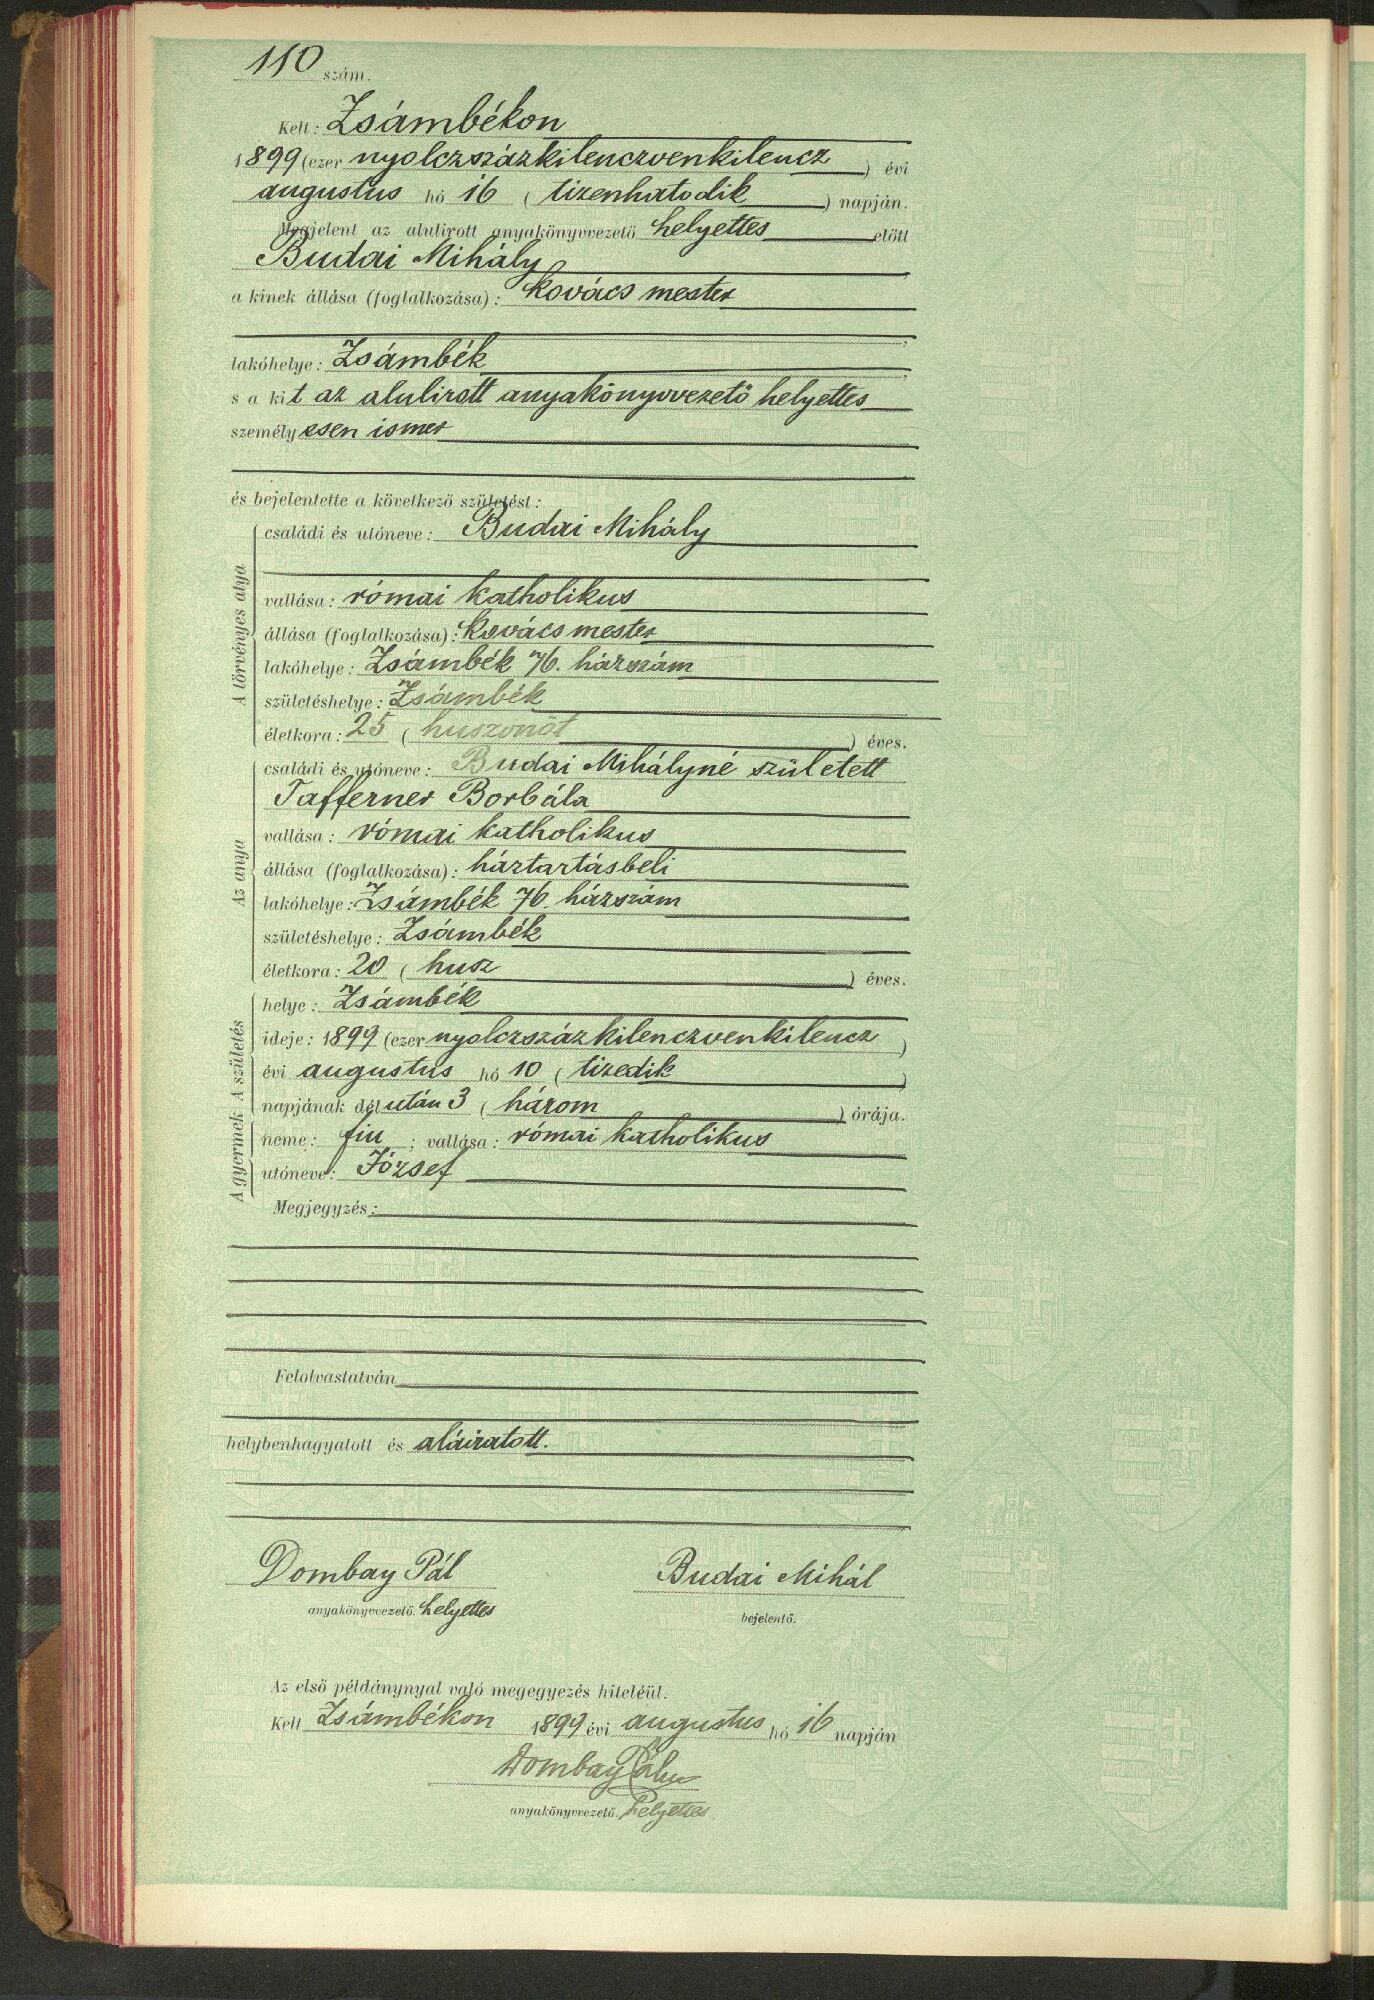 110 szám.
Kelt: Zsámbékon
1899 (ezer nyolczszázkilenczvenkilencz) évi
augustus hó 16 (tizenhatodik) napján.
Megjelent az alulirott anyakönyvvezető helyettes előtt
Budai Mihály
a kinek állása (foglalkozása): kovács mester
lakóhelye: Zsámbék
s a kit az alulirott anyakönyvvezető helyettes
személyesen ismer
és bejelentette a következő születést:
A törvényes atya
családi és utóneve: Budai Mihály
vallása: római katholikus
állása (foglalkozása): kovács mester
lakóhelye: Zsámbék 76. házszám
születéshelye: Zsámbék
életkora: 25 (huszonöt) éves.
Az anya
családi és utóneve: Budai Mihályné született
Tafferner Borbála
vallása: római katholikus
állása (foglalkozása): háztartásbeli
lakóhelye: Zsámbék 76. házszám
születéshelye: Zsámbék
életkora: 20 (husz) éves.
A születés
helye: Zsámbék
ideje: 1899 (ezer nyolczszázkilenczvenkilencz)
évi augustus hó 10 (tizedik)
napjának délután 3 (három) órája.
A gyermek
neme: fiu; vallása: római katholikus
utóneve: József
Megjegyzés:
Felolvastatván
helybenhagyatott és aláiratott.
Dombay Pál Budai Mihál
anyakönyvvezető. helyettes bejelentő.
Az első példánynyal való megegyezés hiteléül.
Kelt Zsámbékon 1899 évi augustus hó 16 napján
Dombay Pál
anyakönyvvezető. helyettes